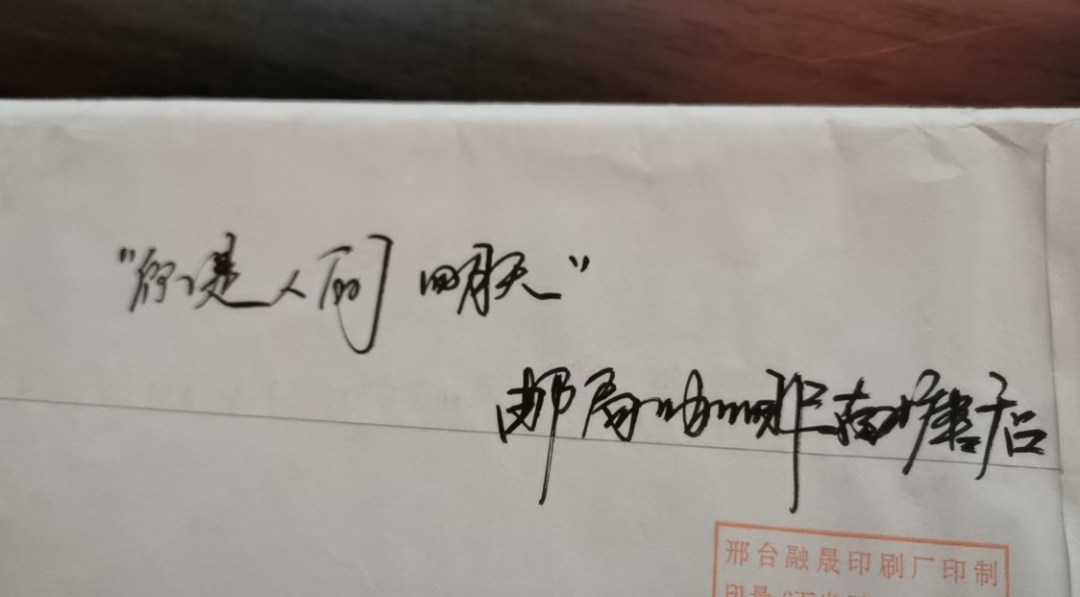 "你是人间 四月天"
邮局咖啡南塘店
邢台融晟印刷厂印制